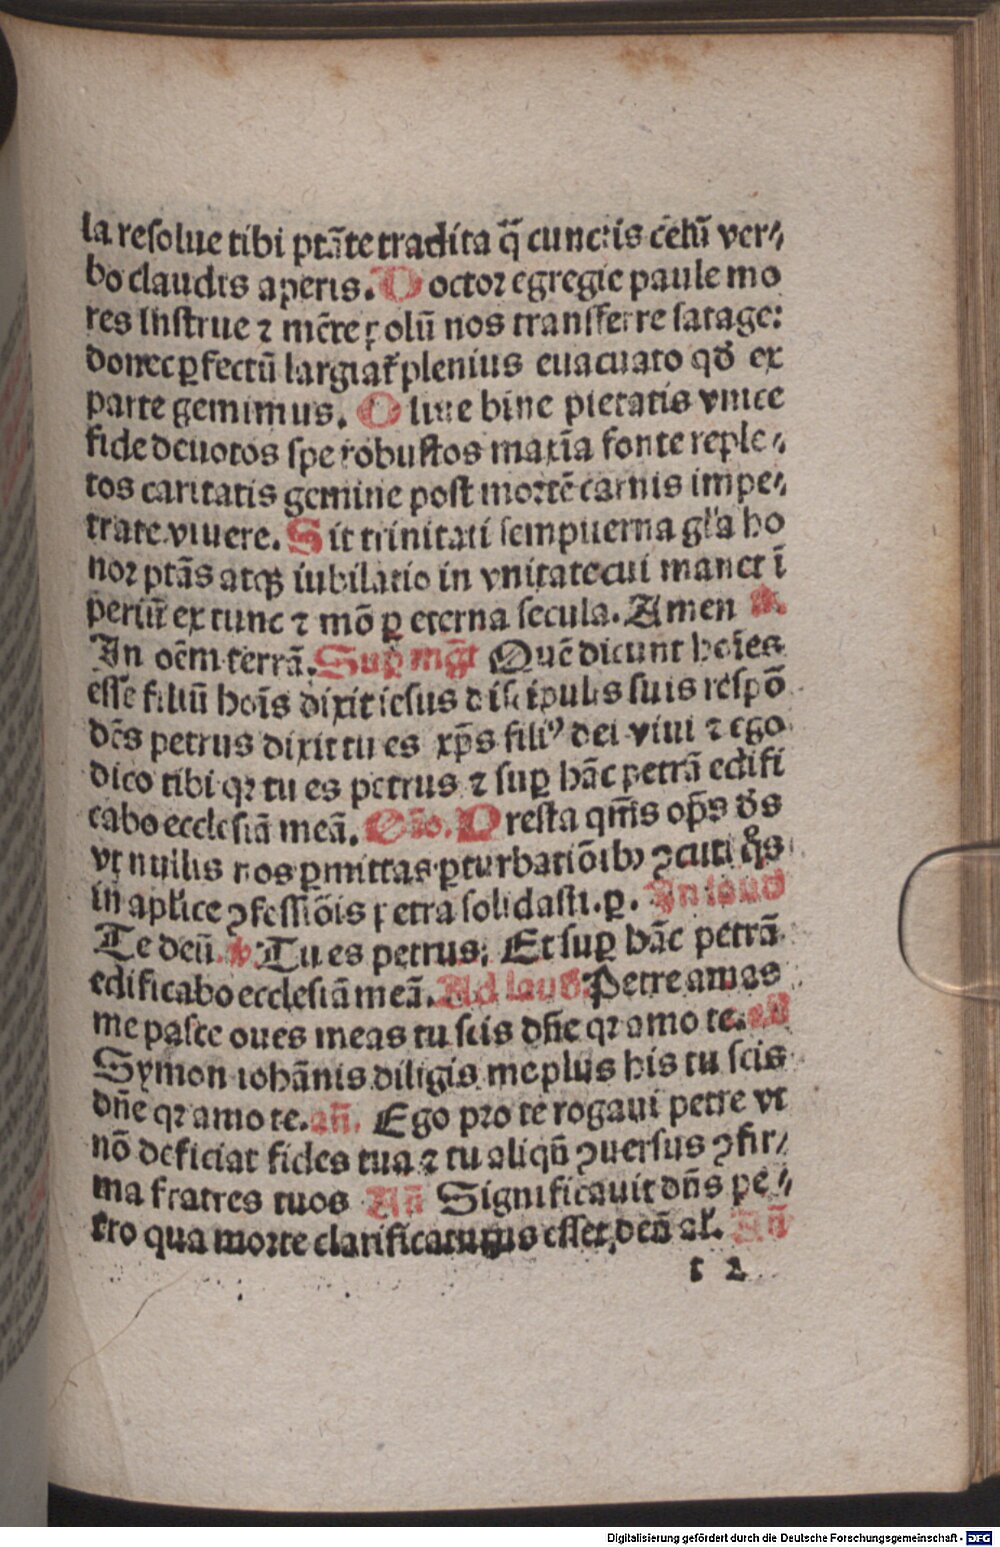 la resolue tibi ptāte tradita q̄ cunctis celū ver⸗
bo claudis aperis. Doctor egregie paule mo
res instrue ⁊ mēte polū nos transferre satage:
donec ꝑfectū largiat᷑ plenius euacuato qđ ex
parte gemimus. Oliue bine pietatis vnice
fide deuotos spe robustos maxīa fonte reple⸗
tos caritatis gemine post mortē carnis impe⸗
trate viuere. Sit trinitati sempiterna gl'a ho
nor ptās atqꝫ iubilatio in vnitate cui manet ī
periū ex tunc ⁊ mō ꝑ eterna secula. Amen
In oēm terrā. Suꝑ mgt̄ Quē dicunt hoīes
esse filiū hoīs dixit iesus discipulis suis respō
dēs petrus dixit tu es xp̄s filiꝰ dei viui ⁊ ego
dico tibi qꝛ tu es petrus ⁊ suꝑ hāc petrā edifi
cabo ecclesiā meā. Oīo. Presta qm̄s op̄s đs
vt nullis nos ꝑmittas ꝑturbatiōibꝫ ꝯcuti q̊s
in apl'ice ꝯfessiōis petra solidasti. ꝑ. In laud
Te deū. ꝟ Tu es petrus: Et suꝑ hāc petrā
edificabo ecclesiā meā. Ad laud̄. Petre amas
me pasce oues meas tu scis dn̄e qꝛ amo te. an̄
Symon iohānis diligis me plus his tu scis
dn̄e qꝛ amo te. an̄. Ego pro te rogaui petre vt
nō deficiat fides tua ⁊ tu aliqn̄ ꝯuersus ꝯfir⸗
ma fratres tuos An̄ Significauit dn̄s pe⸗
tro qua morte clarificaturus esset deū al'. An̄
t 2
Digitalisierung gefördert durch die Deutsche Forschungsgemeinschaft - DFG